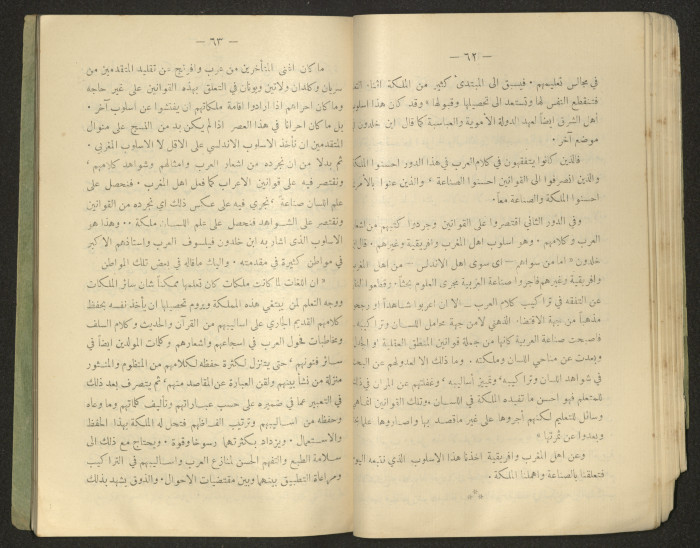 — ٦٢ —
في مجالس تعليمهم . فيسبق الى المبتدئ كثير من الملكة اثناء
فتنقطع النفس لها وتستعد الى تحصيلها وقبولها ، وقد كان هذا
أهل الشرق ايضاً لعهد الدولة الأموية والعباسية كما قال ابن خلدون
موضع آخر .
فالذين كانوا يتفقهون في كلام العرب في هذا الدور احسنوا الملكة
والذين انصرفوا الى القوانين احسنوا الصناعة ، والذين عنوا
احسنوا الملكة والصناعة معاً .
وفي الدور الثاني اقتصروا على القوانين وجردوا كتبهم من
العرب وكلامهم . وهو اسلوب اهل المغرب وافريقية وغيرهم . قال
خلدون « اما من سواهم — اي سوى اهل الاندلس — من اهل المغرب
وافريقية وغيرهم فاجروا صناعة العربية مجرى العلوم بحثاً ، وقطعوا
عن التفقه في تراكيب كلام العرب — الا ان اعربوا شاهداً او
مذهباً من جهة الاقتضاء الذهني لا من جهة محامل اللسان وتراكيبه .
فاصبحت صناعة العربية كانها من جملة قوانين المنطق العقلية او
وبعدت عن مناحي اللسان وملكته . وما ذلك الا لعدولهم عن البحث
في شواهد اللسان وتراكيبه وتمييز أساليبه ، وغفلتهم عن المران في
للمتعلم فهو احسن ما تفيده الملكة في اللسان . وتلك القوانين
وسائل للتعليم لكنهم أجروها على غير ما قصد بها واصاروها علما
وبعدوا عن ثمرتها »
وعن اهل المغرب وافريقية اخذنا هذا الاسلوب الذي نتبعه اليوم
فتعلقنا بالصناعة واهملنا الملكة .
***
— ٦٣ —
ما كان اغنى المتأخرين من عرب وافرنج عن تقليد المتقدمين من
سريان وكلدان ولاتين ويونان في التعلق بهذه القوانين على غير حاجة
وما كان احراهم اذا ارادوا اقامة ملكاتهم ان يفتشوا عن اسلوب آخر .
بل ما كان احرانا في هذا العصر اذا لم يكن بد من النسج على منوال
المتقدمين ان نأخذ الاسلوب الاندلسي على الاقل لا الاسلوب المغربي .
ثم بدلا من ان نجرده من اشعار العرب وامثالهم وشواهد كلامهم ،
ونقتصر فيه على قوانين الاعراب كما فعل اهل المغرب . فنحصل على
علم اللسان صناعة ، نجري فيه على عكس ذلك اي نجرده من القوانين
ونقتصر على الشواهد فنحصل على علم اللسان ملكة .. وهذا هو
الاسلوب الذي اشار به ابن خلدون فيلسوف العرب واستاذهم الاكبر
في مواطن كثيرة في مقدمته . واليك ما قاله في بعض تلك المواطن
« ان اللغات لما كانت ملكات كان تعلمها ممكناً شأن سائر الملكات
ووجه التعلم لمن يبتغي هذه الملكة ويروم تحصيلها ان يأخذ نفسه بحفظ
كلامهم القديم الجاري على اساليبهم من القرآن والحديث وكلام السلف
ومخاطبات فحول العرب في اسجاعهم واشعارهم وكلمات المولدين ايضاً في
سائر فنونهم ، حتى يتنزل لكثرة حفظه لكلامهم من المنظوم والمنثور
منزلة من نشأ بينهم ولقن العبارة عن المقاصد منهم ، ثم يتصرف بعد ذلك
في التعبير عما في ضميره على حسب عباراتهم وتأليف كلماتهم وما وعاه
وحفظه من اساليبهم وترتيب الفاظهم فتحصل له الملكة بهذا الحفظ
والاستعمال . ويزداد بكثرتهما رسوخا وقوة . ويحتاج مع ذلك الى
سلامة الطبع والتفهم الحسن لمنازع العرب واساليبهم في التراكيب
ومراعاة التطبيق بينهما وبين مقتضيات الاحوال . والذوق يشهد بذلك